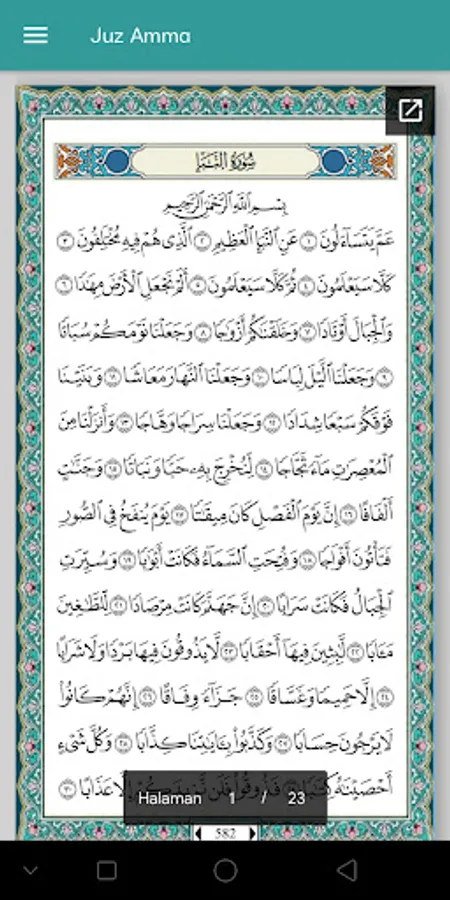 Juz Amma
سُورَةُ النَّبَإِ
بِسْمِ اللَّهِ الرَّحْمَٰنِ الرَّحِيمِ
عَمَّ يَتَسَاءَلُونَ ١ عَنِ النَّبَإِ الْعَظِيمِ ٢ الَّذِي هُمْ فِيهِ مُخْتَلِفُونَ ٣
كَلَّا سَيَعْلَمُونَ ٤ ثُمَّ كَلَّا سَيَعْلَمُونَ ٥ أَلَمْ نَجْعَلِ الْأَرْضَ مِهَٰدًا ٦
وَالْجِبَالَ أَوْتَادًا ٧ وَخَلَقْنَٰكُمْ أَزْوَٰجًا ٨ وَجَعَلْنَا نَوْمَكُمْ سُبَاتًا
٩ وَجَعَلْنَا اللَّيْلَ لِبَاسًا ١٠ وَجَعَلْنَا النَّهَارَ مَعَاشًا ١١ وَبَنَيْنَا
فَوْقَكُمْ سَبْعًا شِدَادًا ١٢ وَجَعَلْنَا سِرَاجًا وَهَّاجًا ١٣ وَأَنزَلْنَا مِنَ
الْمُعْصِرَٰتِ مَاءً ثَجَّاجًا ١٤ لِّنُخْرِجَ بِهِ حَبًّا وَنَبَاتًا ١٥ وَجَنَّٰتٍ
أَلْفَافًا ١٦ إِنَّ يَوْمَ الْفَصْلِ كَانَ مِيقَٰتًا ١٧ يَوْمَ يُنفَخُ فِي الصُّورِ
فَتَأْتُونَ أَفْوَاجًا ١٨ وَفُتِحَتِ السَّمَاءُ فَكَانَتْ أَبْوَٰبًا ١٩ وَسُيِّرَتِ
الْجِبَالُ فَكَانَتْ سَرَابًا ٢٠ إِنَّ جَهَنَّمَ كَانَتْ مِرْصَادًا ٢١ لِّلطَّٰغِينَ
مَـَٔابًا ٢٢ لَّٰبِثِينَ فِيهَا أَحْقَابًا ٢٣ لَّا يَذُوقُونَ فِيهَا بَرْدًا وَلَا شَرَابًا
٢٤ إِلَّا حَمِيمًا وَغَسَّاقًا ٢٥ جَزَاءً وِفَاقًا ٢٦ إِنَّهُمْ كَانُوا
لَا يَرْجُونَ حِسَابًا ٢٧ وَكَذَّبُوا بِـَٔايَٰتِنَا كِذَّابًا ٢٨ وَكُلَّ شَيْءٍ
أَحْصَيْنَٰهُ كِتَٰبًا ٢٩ فَذُوقُوا فَلَن نَّزِيدَكُمْ إِلَّا عَذَابًا ٣٠
Halaman 1 / 23
582